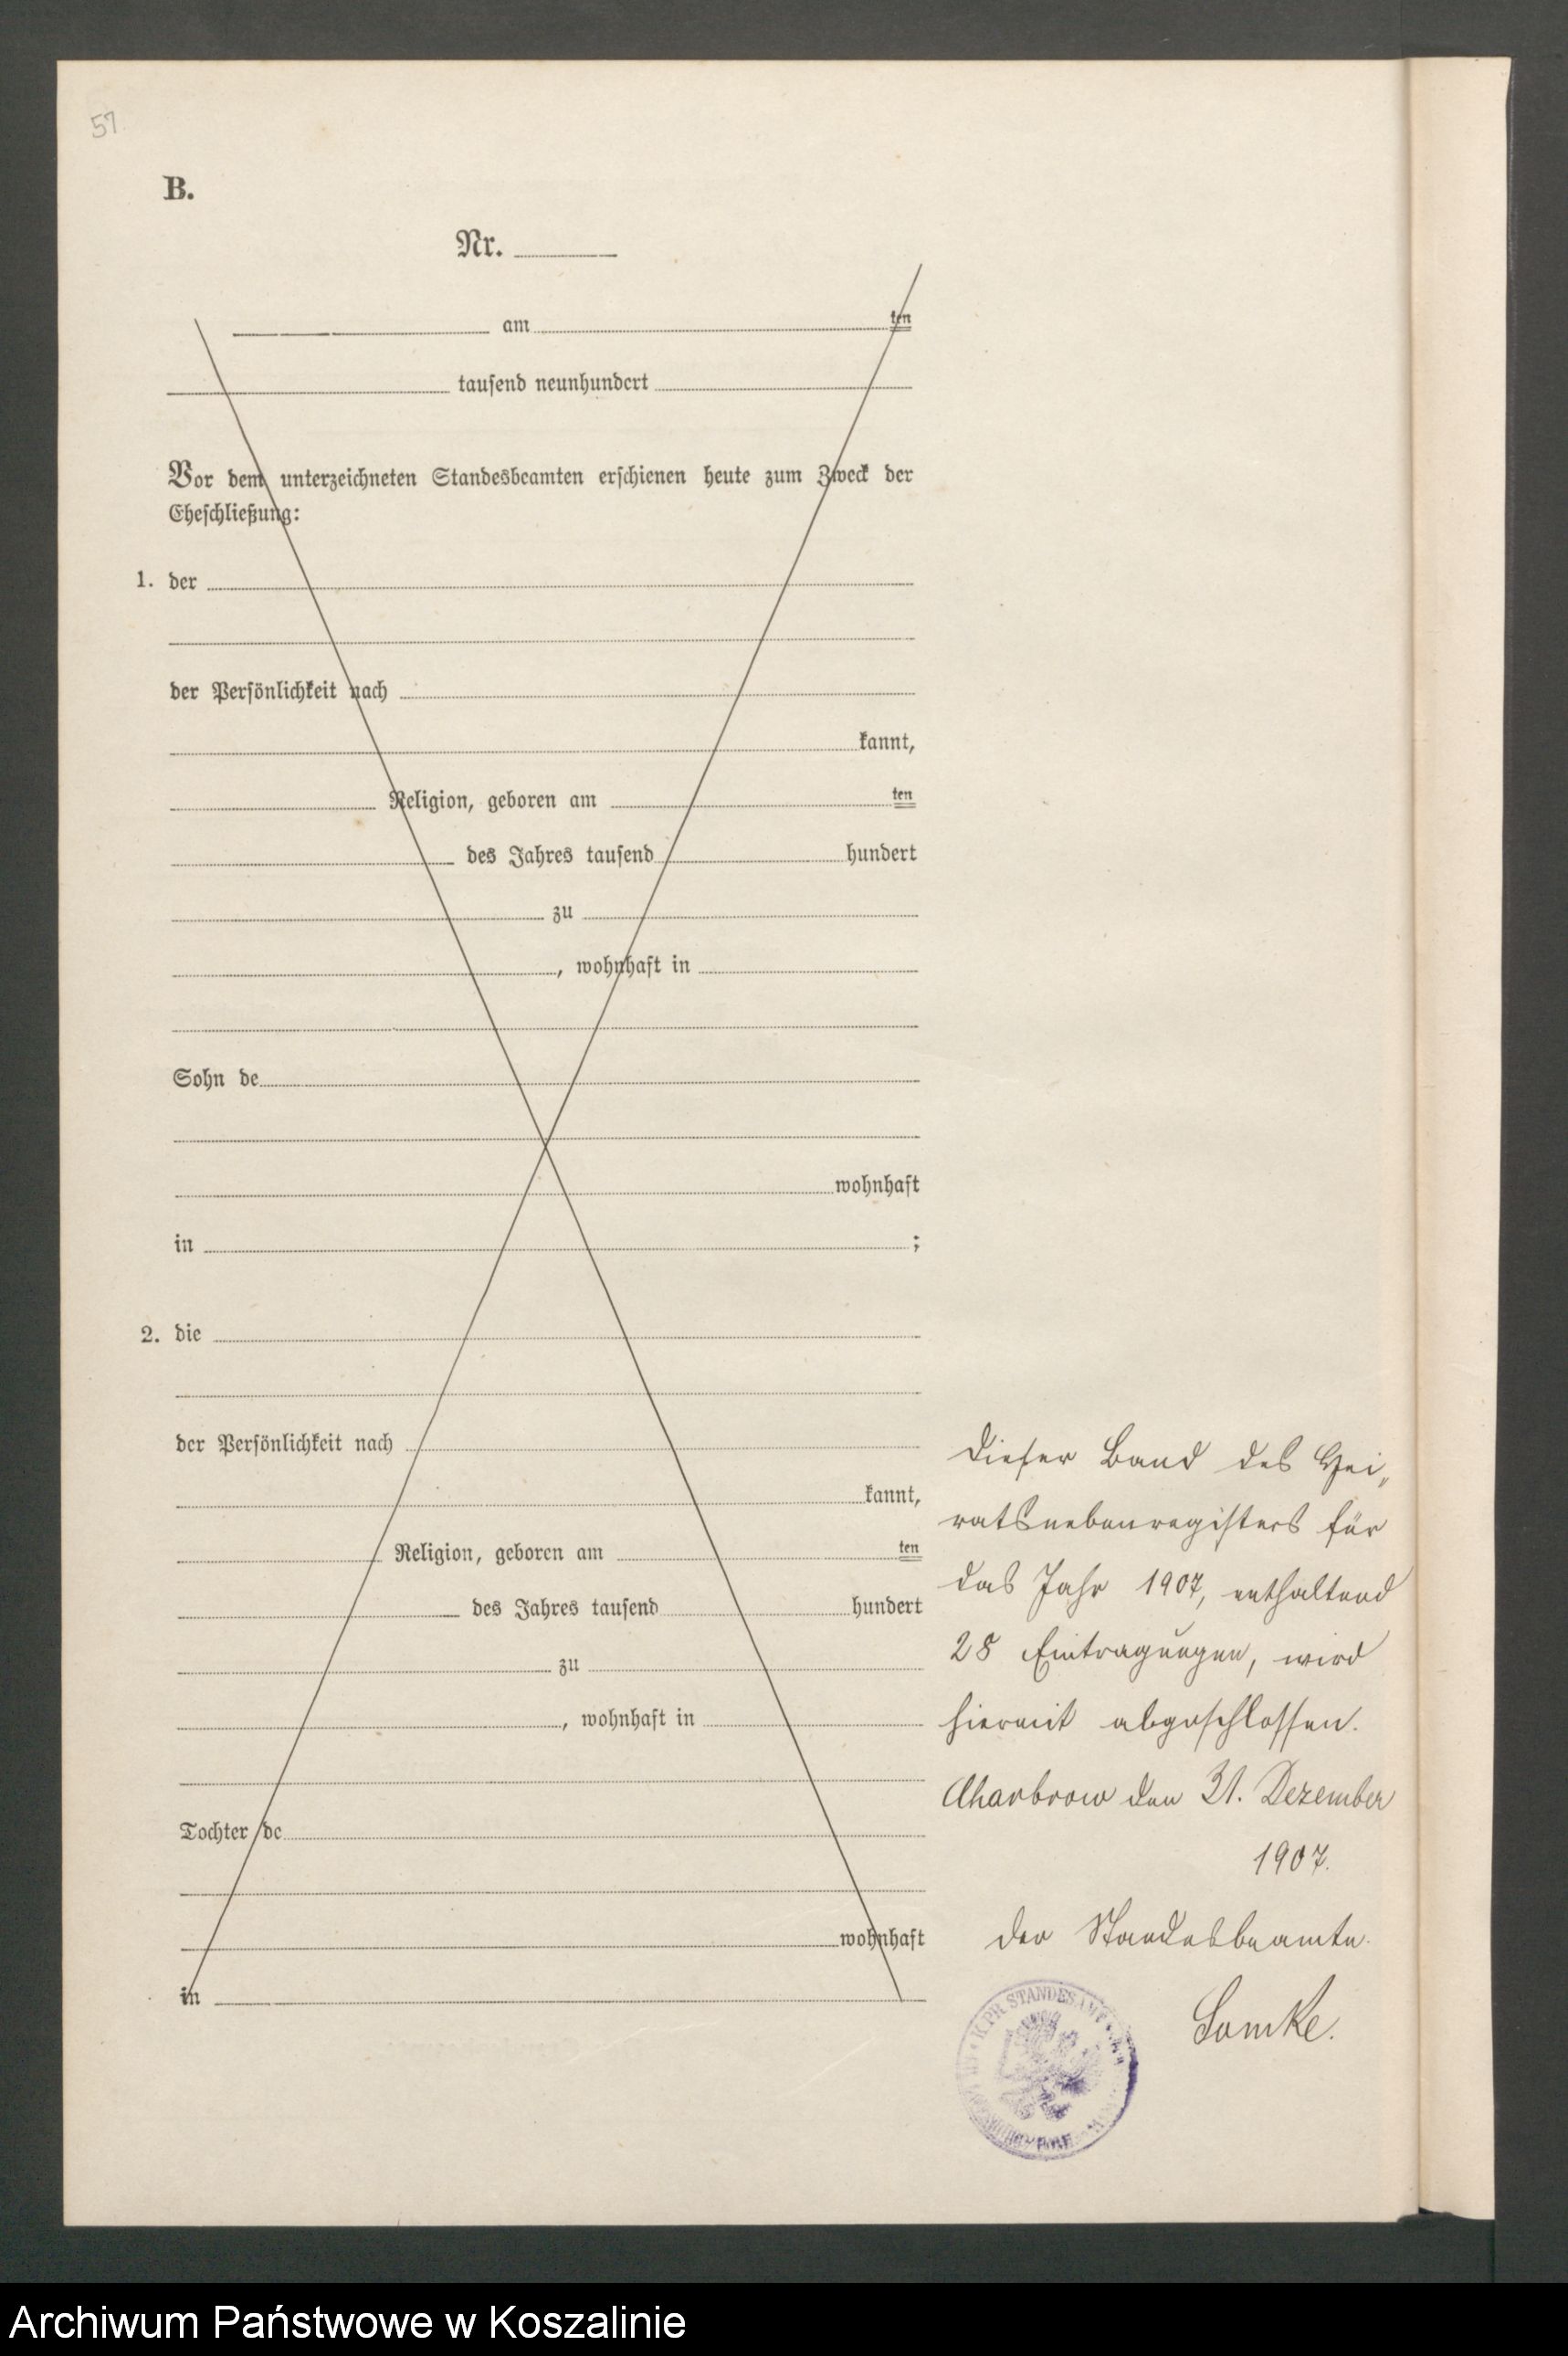 57
B.
Nr.
am ten
tausend neunhundert
Vor dem unterzeichneten Standesbeamten erschienen heute zum Zweck der
Eheschließung:
1. der
der Persönlichkeit nach
kannt,
Religion, geboren am ten
des Jahres tausend hundert
zu
, wohnhaft in
Sohn de
wohnhaft
in ;
2. die
der Persönlichkeit nach
kannt,
Religion, geboren am ten
des Jahres tausend hundert
zu
, wohnhaft in
Tochter de
wohnhaft
in
Dieser Band des Hei„
ratsnebenregisters für
das Jahr 1907, enthaltend
28 Eintragungen, wird
hiermit abgeschlossen.
Charbrow den 31. Dezember
1907.
Der Standesbeamte.
K. PR. STANDESAMT
Archiwum Państwowe w Koszalinie